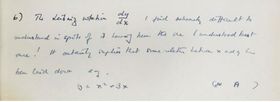 6) The Leibniz notation dy/dx I find extremely difficult to
understand in spite of it having been the one I understood best
once! It certainly implies that some relation between x and y has
been laid down e.g.
y = x² + 3x